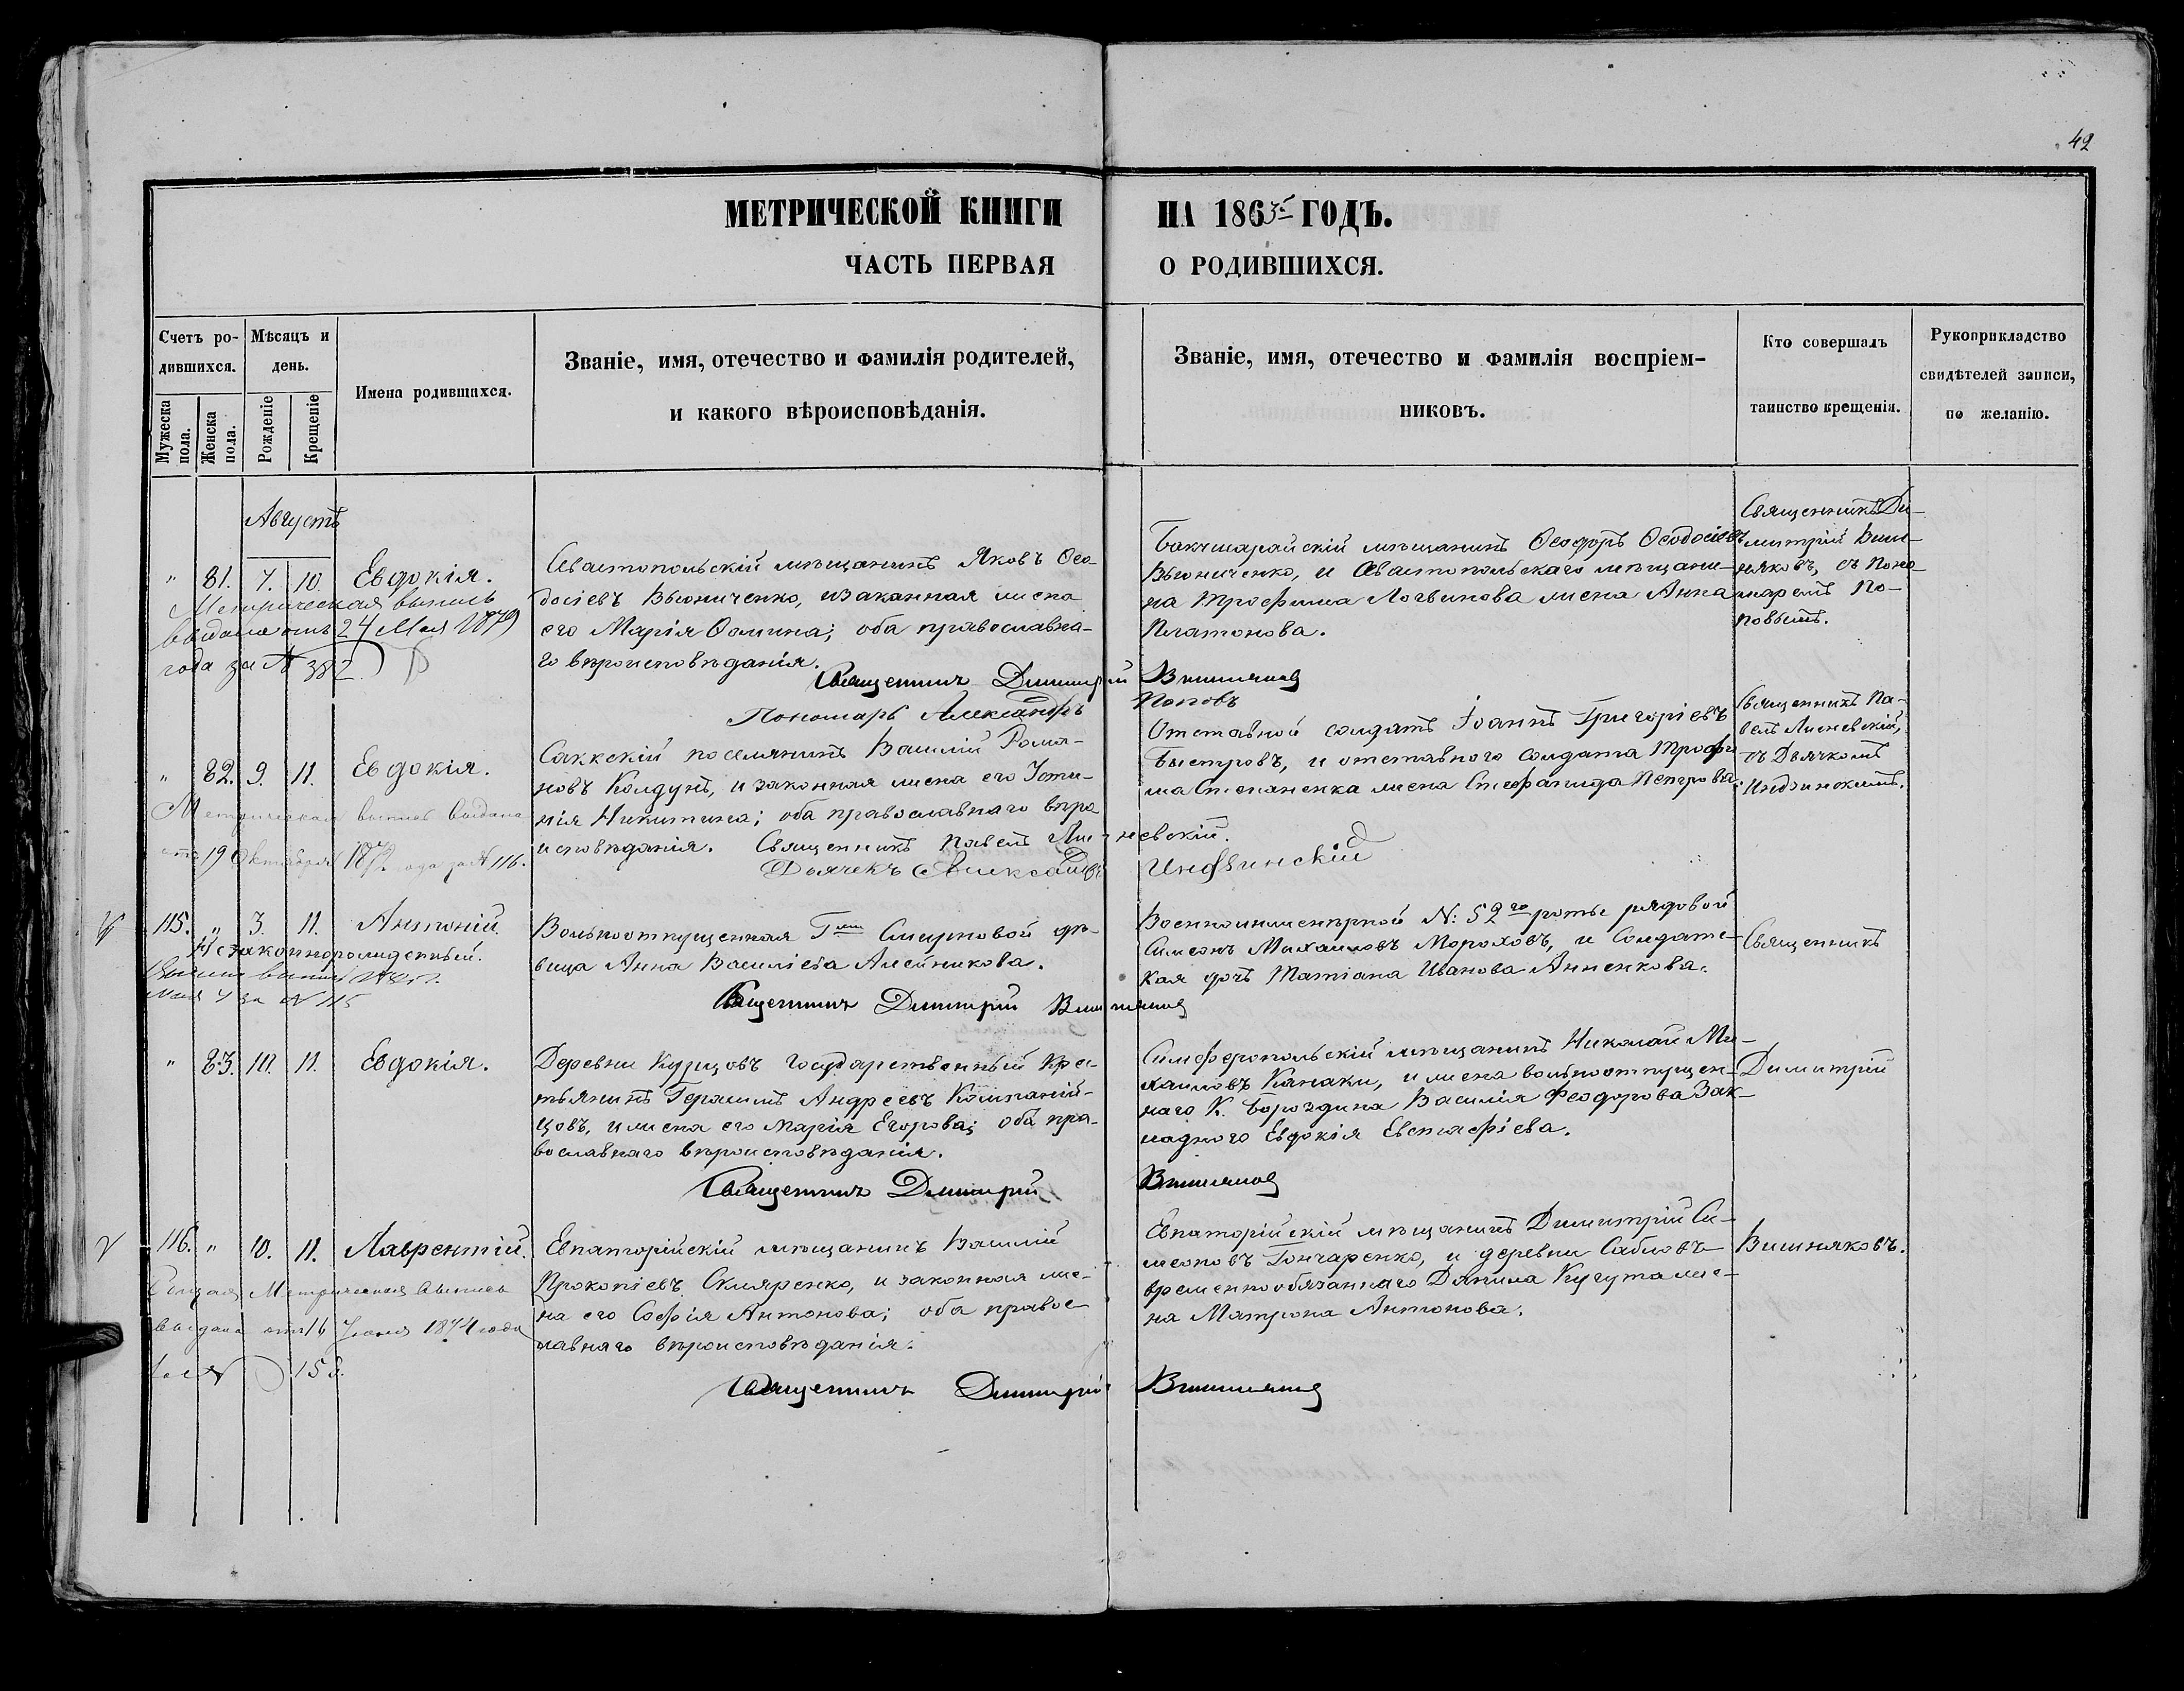 42
МЕТРИЧЕСКОЙ КНИГИ НА 1863й ГОДЪ.
ЧАСТЬ ПЕРВАЯ О РОДИВШИХСЯ.
Счетъ ро-
дившихся.
Мужеска пола.
Женска пола.
Мѣсяцъ и
день.
Рожденіе
Крещеніе
Имена родившихся.
Званіе, имя, отечество и фамилія родителей,
и какого вѣроисповѣданія.
Званіе, имя, отечество и фамилія воспріем-
никовъ.
Кто совершалъ
таинство крещенія.
Рукоприкладство
свидѣтелей записи,
по желанію.
Августъ
" 81. 7. 10. Евдокія.
Метрическая выпись
выдана отъ 24 Мая 1879
года за № 382
Севастопольскій мѣщанинъ Яковъ Ѳео-
досіевъ Вьюниченко, и законная жена
его Марія Ѳомина; оба православна-
го вѣроисповѣданія.
Бакчисарайскій мѣщанинъ Ѳеодоръ Ѳеодосіевъ
Вьюниченко, и Севастопольскаго мѣщани-
на Трофима Логвинова жена Анна
Платонова.
Священникъ Ди-
митрій Виш-
няковъ, съ Поно-
маремъ По-
повымъ.
Священникъ Димитрій Вишняковъ
Пономарь Александръ Поповъ
" 82. 9. 11. Евдокія.
Метрическая выпись выдана
отъ 19 Октября 1872 года за № 116.
Саккскій поселянинъ Василій Рома-
новъ Колдунъ, и законная жена его Усти-
нія Никитина; оба православнаго вѣро
исповѣданія. Священникъ Павелъ
Дьячекъ Александръ
Отставной солдатъ Іоаннъ Григоріевъ
Быстровъ, и отставного солдата Трофи
ма Степаненка жена Стефанида Петрова.
Священникъ Па-
велъ
съ Дьячкомъ
115. " 3. 11. Антоній.
Незаконнорожденный.
Мая 4 за № 115
Вольноотпущенная Гжи Смирновой дѣ-
вица Анна Васильева Алейникова.
Военноинженерной №: 52го роты рядовой
Симеонъ Михаиловъ Мороховъ, и Солдатс-
кая дочь Татіана Иванова Анненкова.
Священникъ
Священникъ Димитрій Вишняковъ
" 83. 10. 11. Евдокія.
Деревни Курцовъ государственный крес-
тьянинъ Герасимъ Андреевъ Компаній-
цовъ, и жена его Марія Егорова; оба пра-
вославнаго вѣроисповѣданія.
Симферопольскій мѣщанинъ Николай Ми-
хаиловъ Канаки, и жена вольноотпущен-
наго К. Бороздина Василія Феодорова Зак-
ладного Евдокія Евстафіева.
Димитрій
Священникъ Димитрій Вишняковъ
116. " 10. 11. Лаврентій.
Метрическая выпись
выдана отъ 16 Іюня 1874 года
за №
Евпаторійскій мѣщанинъ Василій
Прокопіевъ Скляренко, и законная же-
на его Софія Антонова; оба правос
лавнаго вѣроисповѣданія.
Евпаторійскій мѣщанинъ Димитрій Си-
меоновъ Гончаренко, и деревни Сабловъ
временнообязаннаго Данила Кугута же-
на Матрона Антонова.
Вишняковъ.
Священникъ Димитрій Вишняковъ